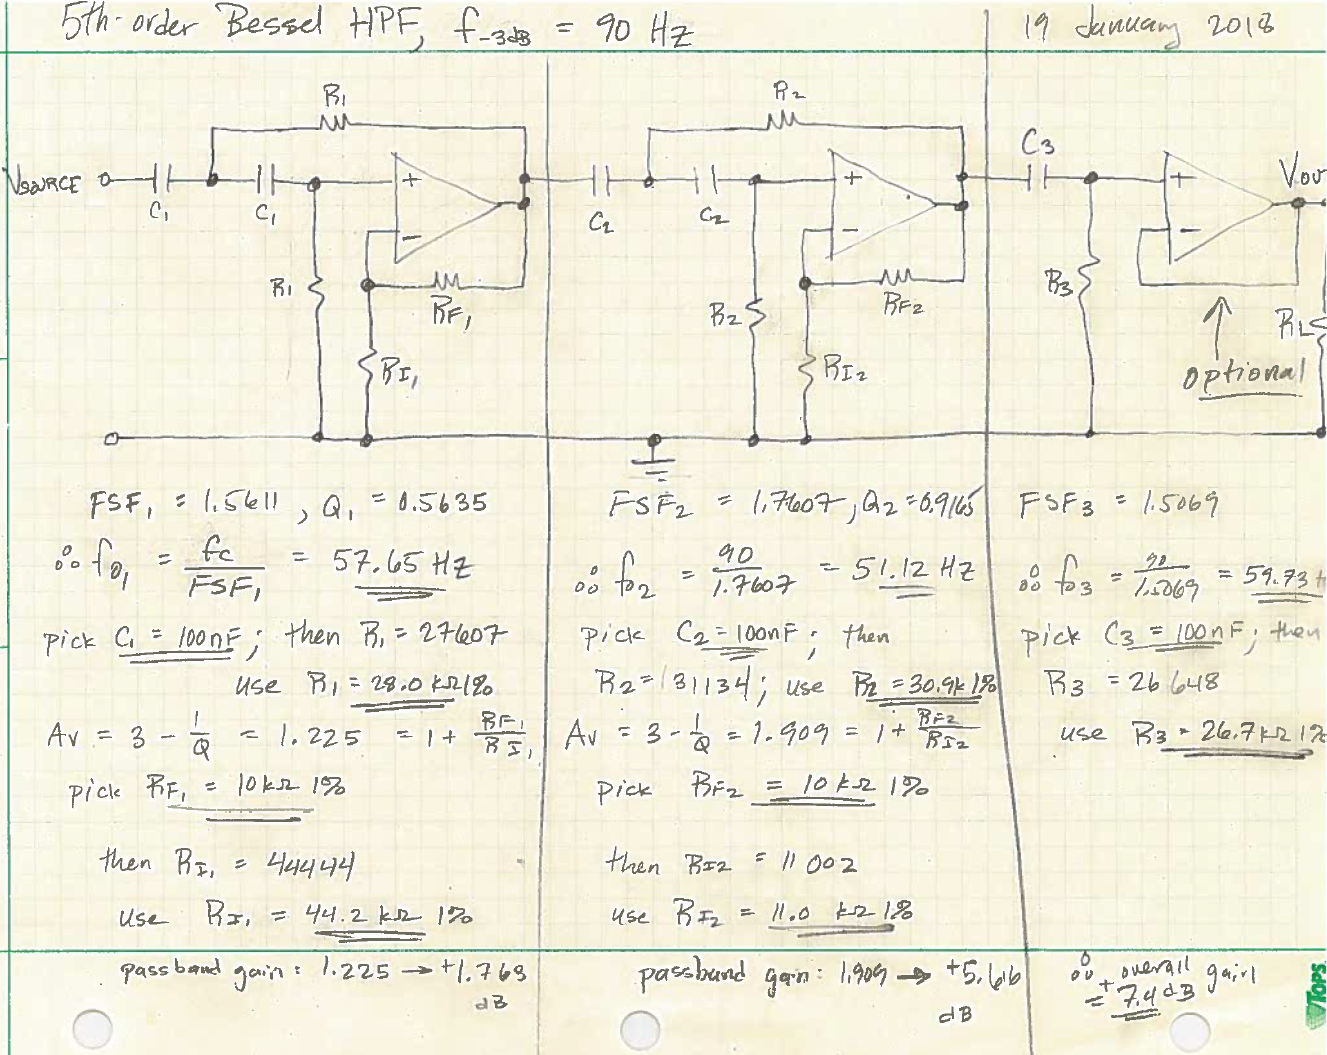 5th-order Bessel HPF, f-3dB = 90 Hz
19 January 2018
R1
R2
C3
VSOURCE
C1
C1
+
−
R1
RF1
RI1
C2
C2
+
−
R2
RF2
RI2
+
−
R3
Vou
RL
optional
FSF1 = 1.5611, Q1 = 0.5635
∴ f01 = fc/FSF1 = 57.65 Hz
pick C1 = 100nF; then R1 = 27607
use R1 = 28.0 kΩ 1%
Av = 3 - 1/Q = 1.225 = 1 + RF1/RI1
pick RF1 = 10kΩ 1%
then RI1 = 44444
use RI1 = 44.2 kΩ 1%
passband gain: 1.225 → +1.763
dB
FSF2 = 1.7607, Q2 = 0.9165
∴ f02 = 90/1.7607 = 51.12 Hz
pick C2 = 100nF; then
R2 = 31134; use R2 = 30.9k 1%
Av = 3 - 1/Q = 1.909 = 1 + RF2/RI2
pick RF2 = 10 kΩ 1%
then RI2 = 11002
use RI2 = 11.0 kΩ 1%
passband gain: 1.909 → +5.616
dB
FSF3 = 1.5069
∴ f03 = 90/1.5069 = 59.73 H
pick C3 = 100nF; then
R3 = 26648
use R3 = 26.7kΩ 1%
∴ overall gain
= +7.4 dB
TOPS